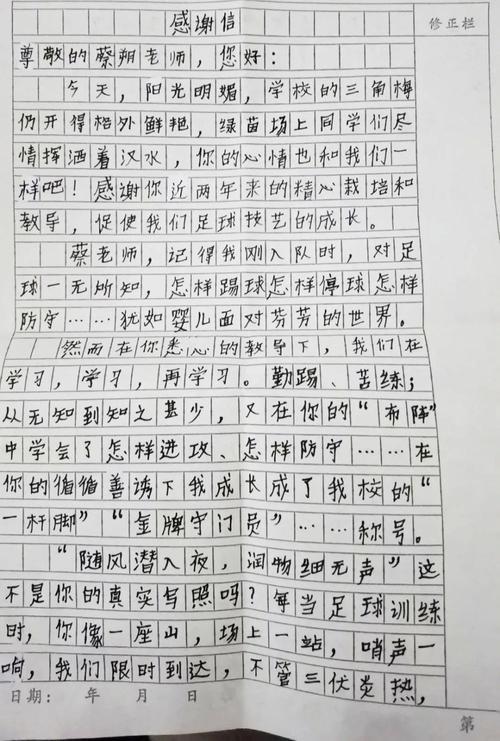 感谢信
修正栏
尊敬的蔡朔老师，您好：
今天，阳光明媚，学校的三角梅
仍开得格外鲜艳，绿茵场上同学们尽
情挥洒着汉水，你的心情也和我们一
样吧！感谢你近两年来的精心栽培和
教导，促使我们足球技艺的成长。
蔡老师，记得我刚入队时，对足
球一无所知，怎样踢球怎样停球怎样
防守……犹如婴儿面对芬芳的世界。
然而在你悉心的教导下，我们在
学习，学习，再学习。勤踢、苦练；
从无知到知之甚少，又在你的“布阵”
中学会了怎样进攻、怎样防守……在
你的循循善诱下我成长成了我校的“
一杆脚”“金牌守门员”……称号。
“随风潜入夜，润物细无声”这
不是你的真实写照吗？每当足球训练
时，你像一座山，场上一站，哨声一
响，我们限时到达，不管三伏炎热，
日期： 年 月 日
第